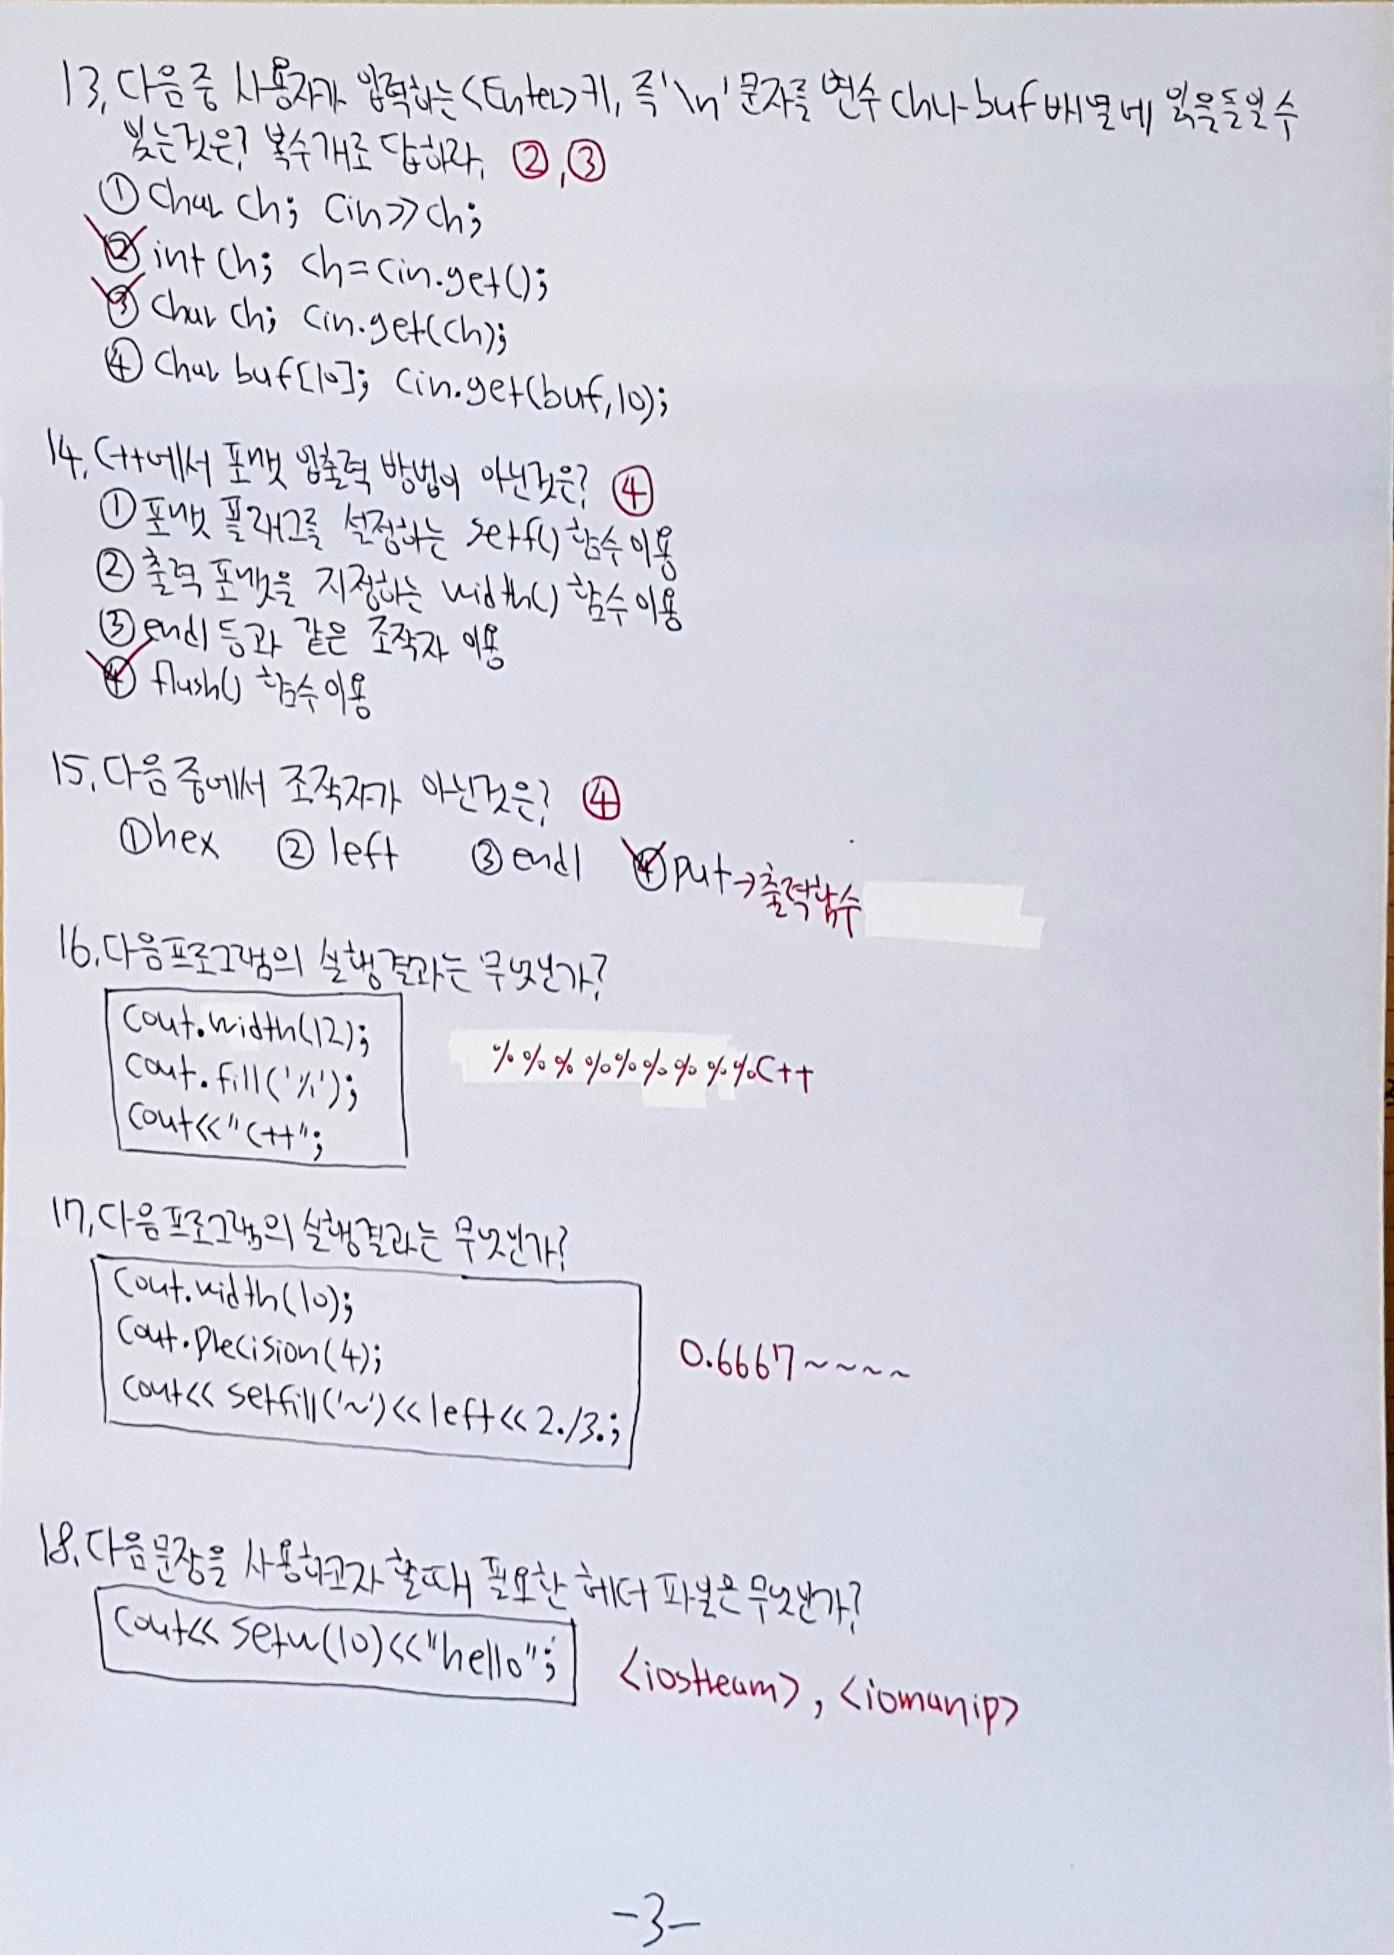 13. 다음 중 사용자가 입력하는 <Enter>키, 즉 '\n' 문자를 변수 ch나 buf 배열에 읽을들일 수
있는것은? 복수개로 답하라. ②,③
① char ch; cin>>ch;
② int ch; ch=cin.get();
③ char ch; cin.get(ch);
④ char buf[10]; cin.get(buf,10);
14. C++에서 포맷 입출력 방법이 아닌것은? ④
① 포맷 플래그를 설정하는 setf() 함수 이용
② 출력 포맷을 지정하는 width() 함수 이용
③ endl 등과 같은 조작자 이용
④ flush() 함수 이용
15. 다음 중에서 조작자가 아닌것은? ④
① hex ② left ③ endl ④ put→출력함수
16. 다음 프로그램의 실행결과는 무엇인가?
cout.width(12);
cout.fill('%');
cout<<"C++";
%%%%%%%%%C++
17. 다음 프로그램의 실행결과는 무엇인가?
cout.width(10);
cout.precision(4);
cout<< setfill('~')<<left<< 2./3.;
0.6667~~~~
18. 다음 문장을 사용하고자 할때 필요한 헤더 파일은 무엇인가?
cout<< setw(10)<<"hello";
<iostream>, <iomanip>
-3-